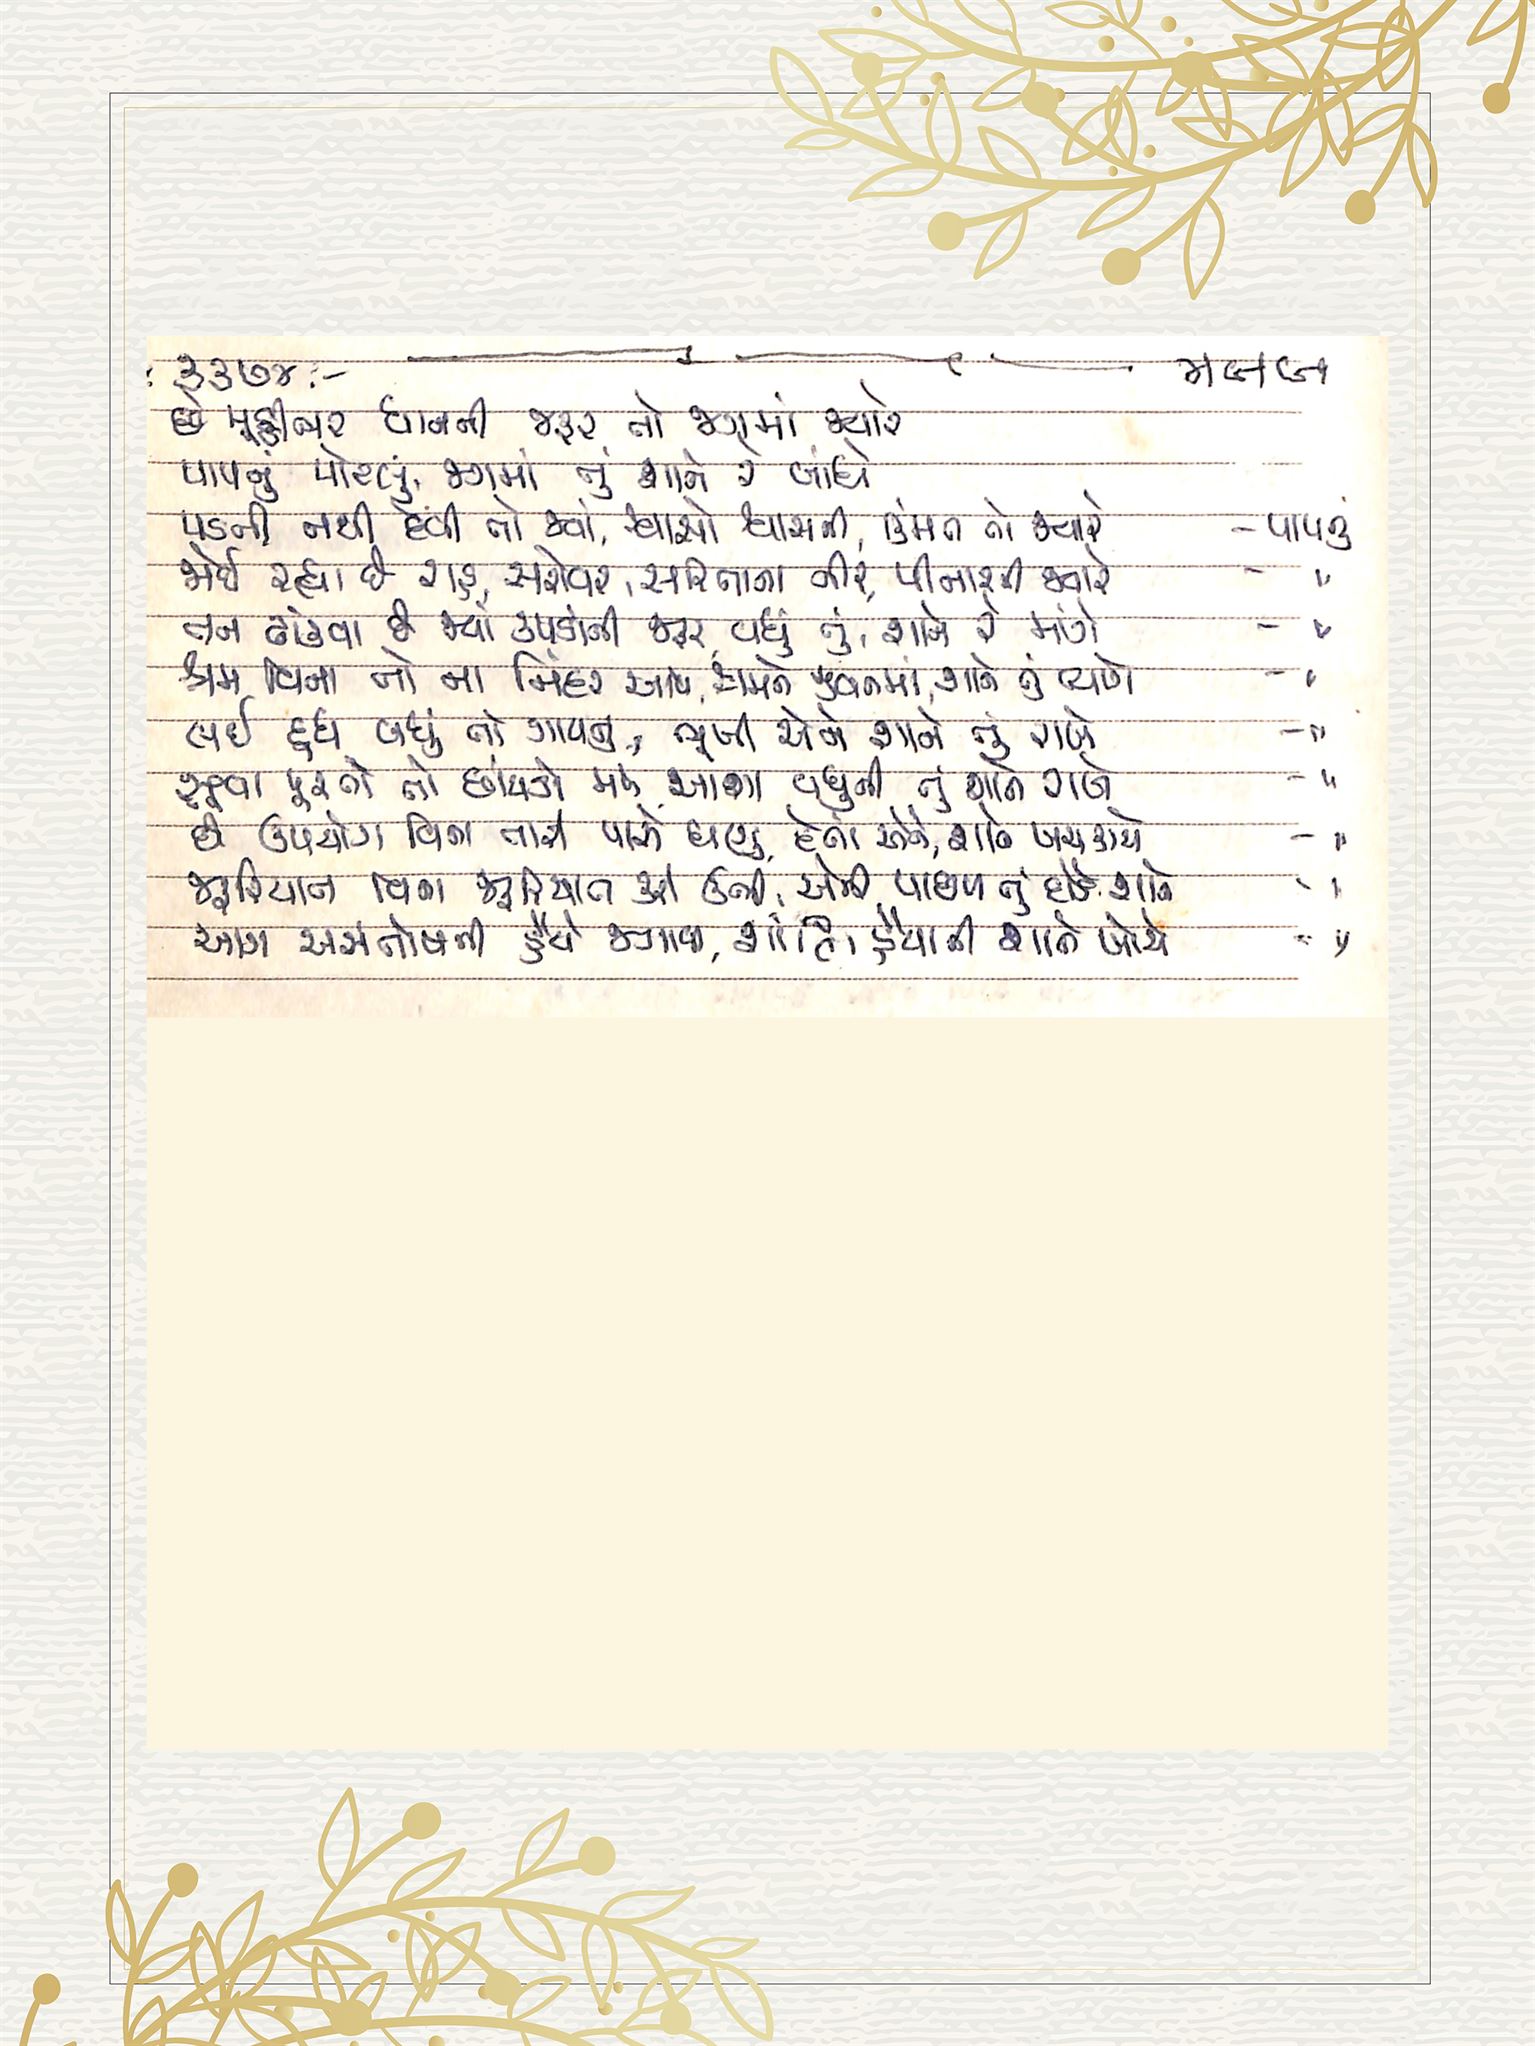 ૩૩૭૪:-
છે મૂઠ્ઠીભર ધાનની જરૂર તો જગમાં જ્યારે
પાપનું પોટલું, જગમાં તું શાને રે બાંધે
પડતી નથી દેવી તો જ્યાં, શ્વાસો શ્વાસની, કિંમત તો જ્યારે - પાપનું
જોઈ રહ્યા છે રાહ, સરોવર, સરિતાના નીર, પીનારની જ્યારે - "
તન ઢાંકવા છે જ્યાં કપડાંની જરૂર, વધું તું, શાને રે માંગે - "
શ્રમ વિના તો ના નિંદર આવે, શ્રમને જીવનમાં, શાને તું ત્યાગે - "
લઈ દુધ બધું તો ગાયનુ, ભૂખી એને શાને તું રાખે - "
સૂવા પૂરતો તો છાંયડો મળે, આશા વધુની તું શાને રાખે - "
છે ઉપયોગ વિના તારી પાસે ઘણુ, દેતાં એને, શાને ખચકાયે - "
જરૂરિયાત વિના જરૂરિયાત કરી ઉભી, એની પાછળ તું દોડે શાને - "
આગ અસંતોષની હૈયે જગાવી, શાંતિ હૈયાની શાને ખોયે - "